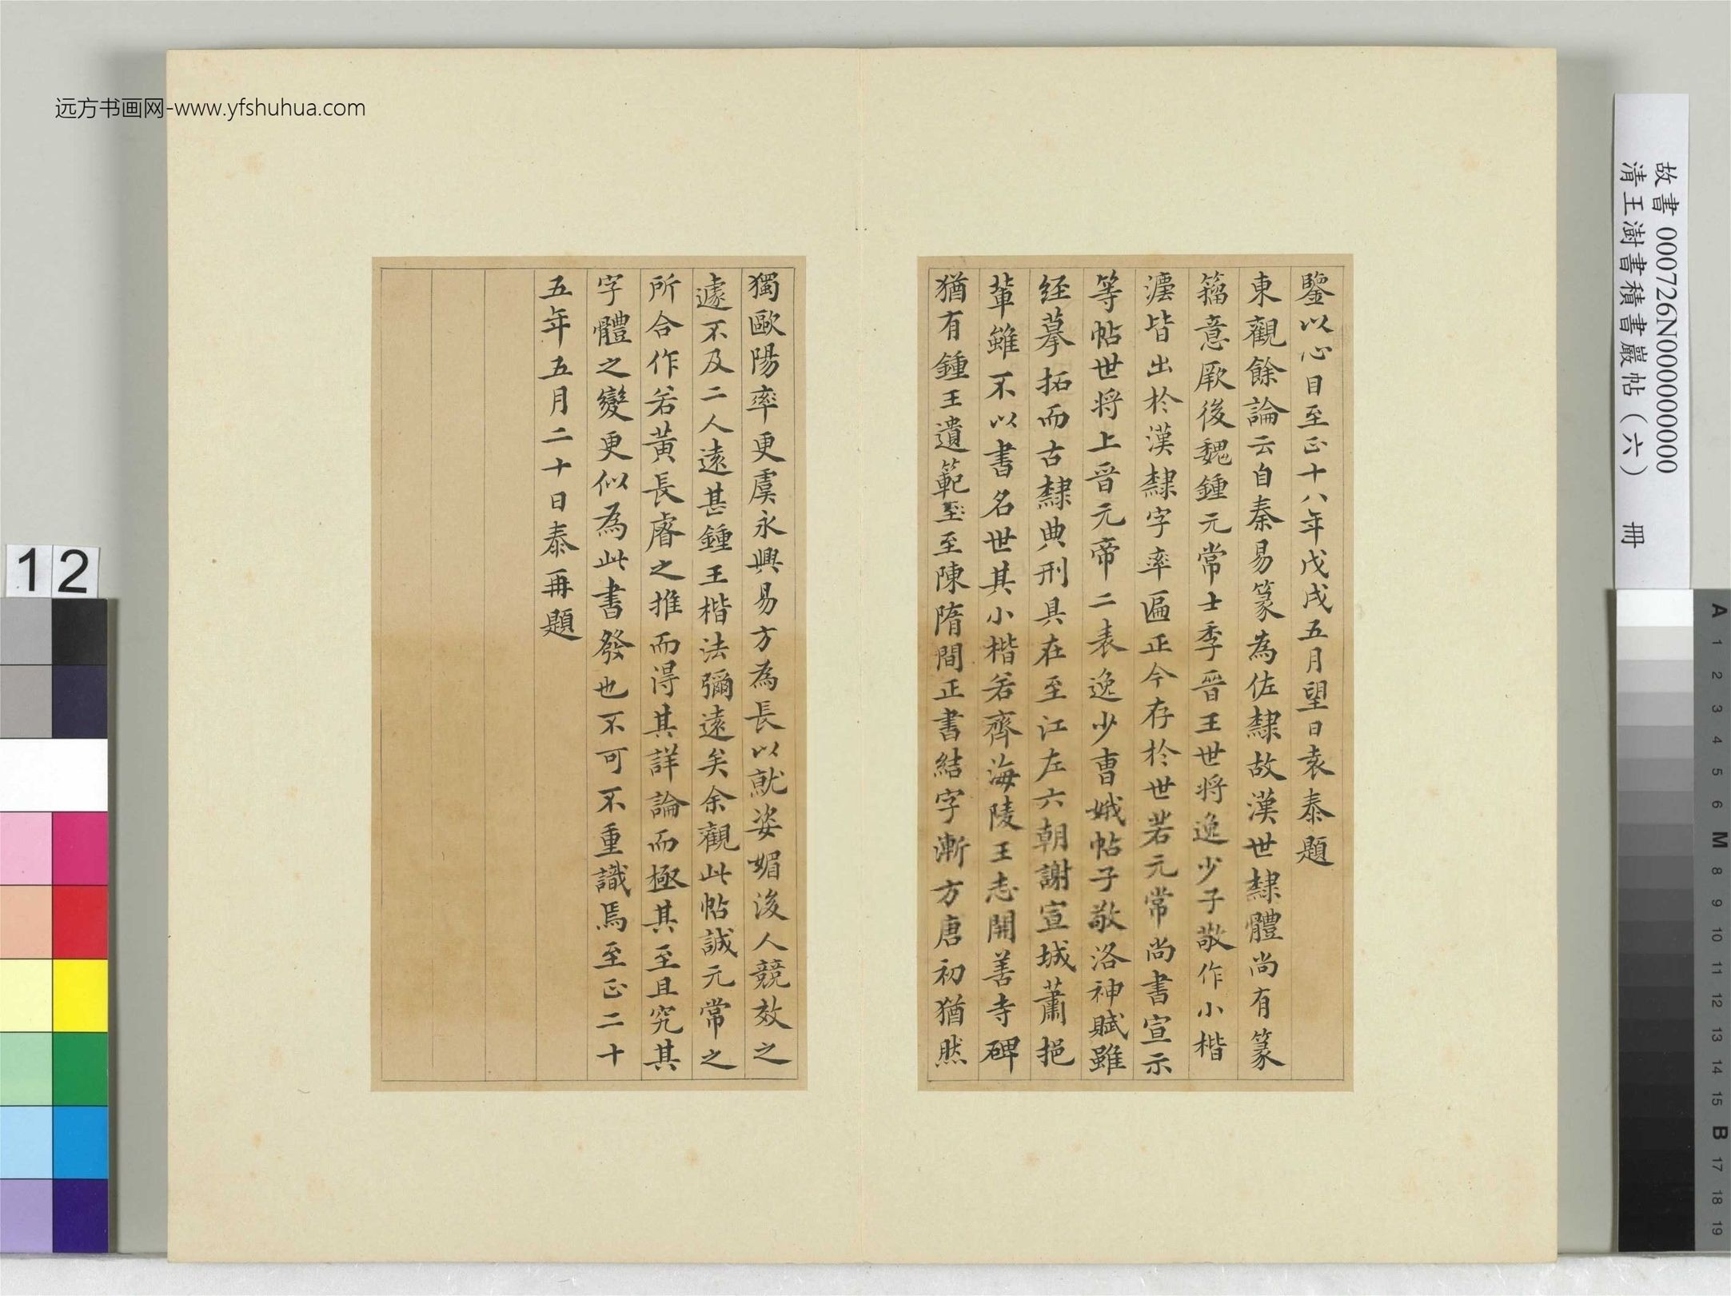 远方书画网-www.yfshuhua.com
鑒以心目至正十八年戊戌五月望日袁泰題
東觀餘論云自秦易篆為佐隸故漢世隸體尚有篆
籀意厥後魏鍾元常士季晉王世将逸少子敬作小楷
灋皆出於漢隸字率匾正今存於世若元常尚書宣示
等帖世将上晉元帝二表逸少曹娥帖子敬洛神賦雖
经摹拓而古隸典刑具在至江左六朝謝宣城蕭挹
輩雖不以書名世其小楷若齊海陵王志開善寺碑
猶有鍾王遺範至至陳隋間正書結字漸方唐初猶然
獨歐陽率更虞永興易方為長以就姿媚後人競效之
遽不及二人遠甚鍾王楷法彌遠矣余觀此帖誠元常之
所合作若黃長睿之推而得其詳論而極其至且究其
字體之變更似為此書發也不可不重識焉至正二十
五年五月二十日泰再題
故書 000726N000000000
清王澍書積書巖帖（六） 冊
12
A
1
2
3
4
5
6
M
8
9
10
11
12
13
14
15
B
17
18
19